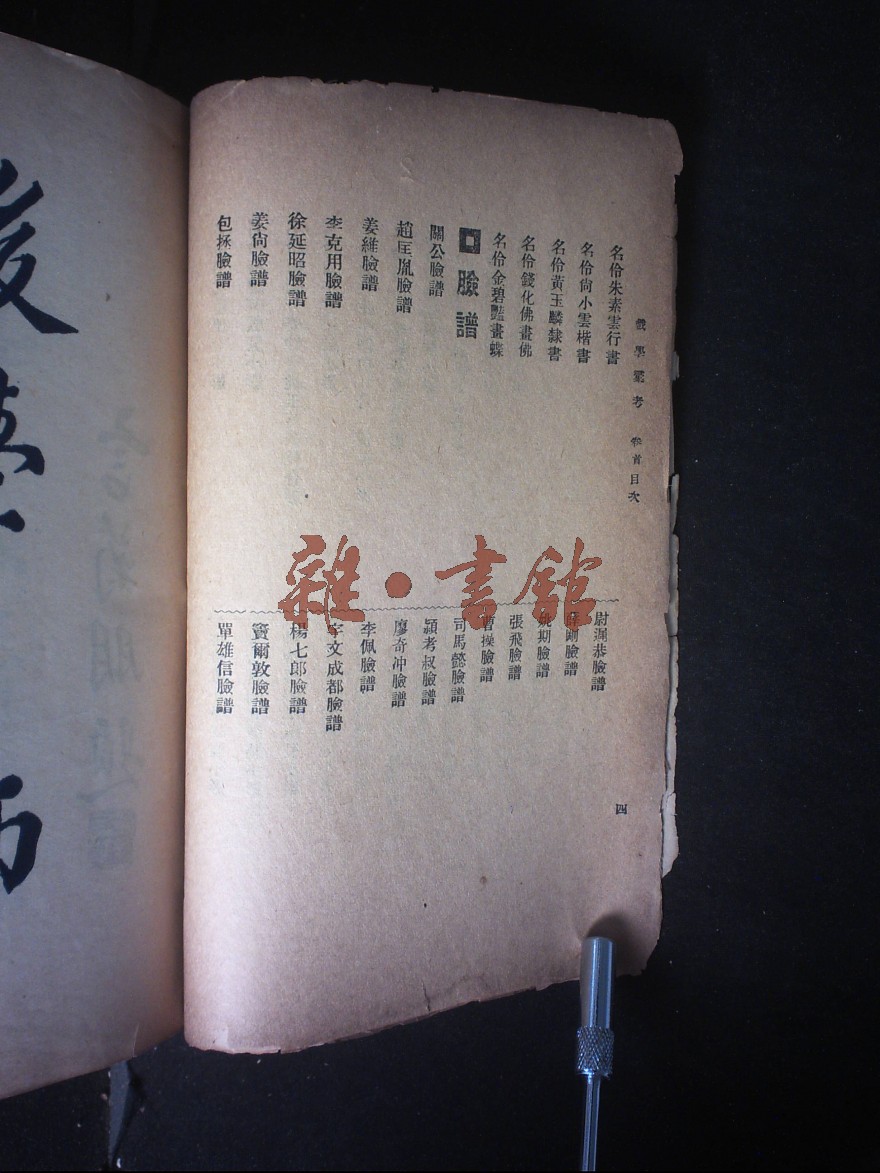 戲學彙考 卷首目次
名伶朱素雲行書
名伶尙小雲楷書
名伶黃玉麟隸書
名伶錢化佛畫佛
名伶金碧豔畫蝶
臉譜
關公臉譜
趙匡胤臉譜
姜維臉譜
李克用臉譜
徐延昭臉譜
姜尙臉譜
包拯臉譜
尉遲恭臉譜
剛臉譜
期臉譜
張飛臉譜
曹操臉譜
司馬懿臉譜
潁考叔臉譜
廖奇冲臉譜
李佩臉譜
宇文成都臉譜
楊七郎臉譜
竇爾敦臉譜
單雄信臉譜
四
雜·書館